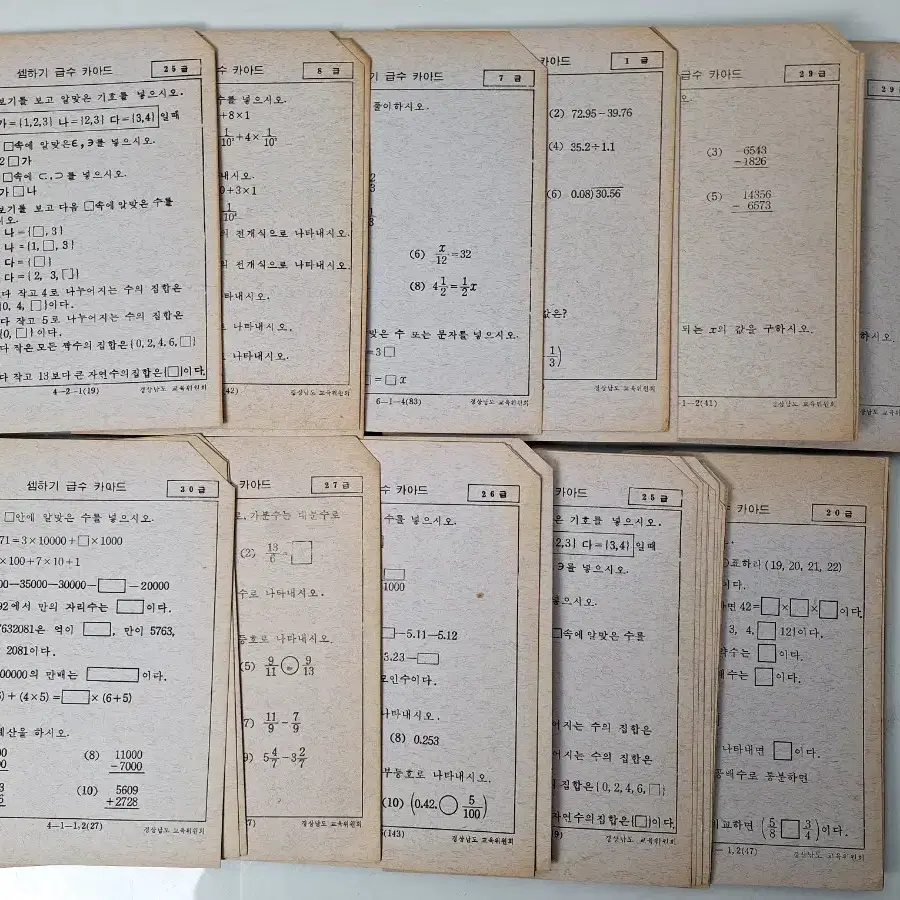 셈하기 급수 카아드 25급
보기를 보고 알맞은 기호를 넣으시오.
가={1,2,3} 나={2,3} 다={3,4} 일때
□속에 알맞은∈,∋를 넣으시오.
2□가
□속에 ⊂,⊃를 넣으시오.
가□나
보기를 보고 다음 □속에 알맞은 수를
시오.
나={□, 3}
나={1, □, 3}
다={□}
다={2, 3, □}
다 작고 4로 나누어지는 수의 집합은
{0, 4, □}이다.
다 작고 5로 나누어지는 수의 집합은
{0, □}이다.
다 작은 모든 짝수의 집합은{0, 2, 4, 6, □}
다 작고 13보다 큰 자연수의 집합은{□}이다.
4-2-1(19) 경상남도 교육위원회
카아드 8급
수를 넣으시오.
+8×1
1/10¹+4×1/10³
내시오.
0+3×1
1/10³
의 전개식으로 나타내시오.
의 전개식으로 나타내시오.
타내시오.
로 나타내시오.
로 나타내시오.
(42) 경상남도 교육위원회
급수 카아드 7급
풀이하시오.
(6) x/12=32
(8) 4 1/2=1/2x
맞은 수 또는 문자를 넣으시오.
=3□
=□x
6-1-4(83) 경상남도 교육위원회
카아드 1급
(2) 72.95-39.76
(4) 35.2÷1.1
(6) 0.08)30.56
값은?
1/3)
경상남도 교육위원회
급수 카아드 29급
오.
(3) 6543
-1826
(5) 14356
- 6573
되는 x의 값을 구하시오.
-1-2(41) 경상남도 교육위원회
29
하시오.
경상남도 교육위원회
셈하기 급수 카아드 30급
□안에 알맞은 수를 넣으시오.
71=3×10000+□×1000
×100+7×10+1
00-35000-30000-□-20000
92에서 만의 자리수는 □이다.
7632081은 억이 □, 만이 5763,
2081이다.
00000의 만배는 □이다.
)+(4×5)=□×(6+5)
계산을 하시오.
(8) 11000
-7000
(10) 5609
+2728
4-1-1,2(27) 경상남도 교육위원회
카아드 27급
로, 가분수는 대분수로
(2) 13/6=□
수로 나타내시오.
등호로 나타내시오
(5) 9/11○9/13
7) 11/9-7/9
9) 5 4/7-3 2/7
7) 경상남도 교육위원회
급수 카아드 26급
수를 넣으시오.
1000
□-5.11-5.12
3.23-□
인수이다.
나타내시오.
(8) 0.253
부등호로 나타내시오.
(10) (0.42, ○ 5/100)
(143) 경상남도 교육위원회
급수 카아드 25급
은 기호를 넣으시오.
2,3} 다={3,4} 일때
∋를 넣으시오.
오.
□속에 알맞은 수를
어지는 수의 집합은
어지는 수의 집합은
집합은{0, 2, 4, 6, □}
자연수의 집합은{□}이다.
9) 경상남도 교육위원회
카아드 20급
(19, 20, 21, 22)
이다.
하면 42=□×□×□이다
3, 4, □ 12이다.
약수는 □이다.
배수는 □이다.
나타내면 □이다.
공배수로 통분하면
비교하면 (5/8 □ 3/4)이다.
-1,2(47) 경상남도 교육위원회